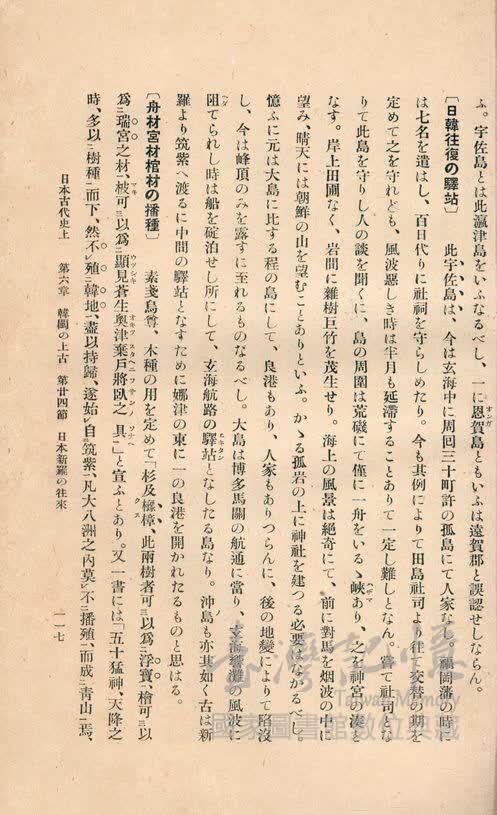 ふ。宇佐島とは此瀛津島をいふなるべし、一に恩賀島ともいふは遠賀郡と誤認せしならん。
〔日韓往復の驛站〕 此宇佐島は、今は玄海中に周囘三十町許の孤島にて人家なし。福岡藩の時に
は七名を遣はし、百日代りに社祠を守らしめたり。今も其例によりて田島社司より往て交替の期を
定めて之を守れども、風波惡しき時は半月も延滯することありて一定し難しとなん。嘗て社司とな
りて此島を守りし人の談を聞くに、島の周圍は荒磯にて僅に一舟をいるゝ峽あり、之を神宮の湊と
なす。岸上田圃なく、岩間に雜樹巨竹を茂生せり。海上の風景は絶奇にて、前に對馬を烟波の中に
望み、晴天には朝鮮の山を望むことありといふ。かゝる孤岩の上に神社を建つる必要はなかるべし。
憶ふに元は大島に比する程の島にして、良港もあり、人家もありつらんに、後の地變によりて陷沒
し、今は峰頂のみを露すに至れるものなるべし。大島は博多馬關の航通に當り、玄海響灘の風波に
阻てられし時は船を碇泊せし所にして、玄海航路の驛站となしたる島なり。沖島も亦其如く古は新
羅より筑紫へ渡るに中間の驛站となすために娜津の東に一の良港を開かれたるものと思はる。
〔舟材宮材棺材の播種〕 素戔烏尊、木種の用を定めて「杉及櫲樟、此兩樹者可三以爲二浮寶一、檜可三以
爲二瑞宮之材一、柀可三以爲二顯見蒼生奧津棄戸將臥之具一」と宣ふとあり。又一書には「五十猛神、天降之
時、多以二樹種一而下、然不レ殖二韓地一、盡以持歸、遂始レ自二筑紫一、凡大八洲之內莫レ不三播殖一而成二靑山一焉、
日本古代史上 第六章 韓閩の上古 第廿四節 日本新羅の往來 一一七
臺灣記憶
Taiwan Memory
國家圖書館數位典藏